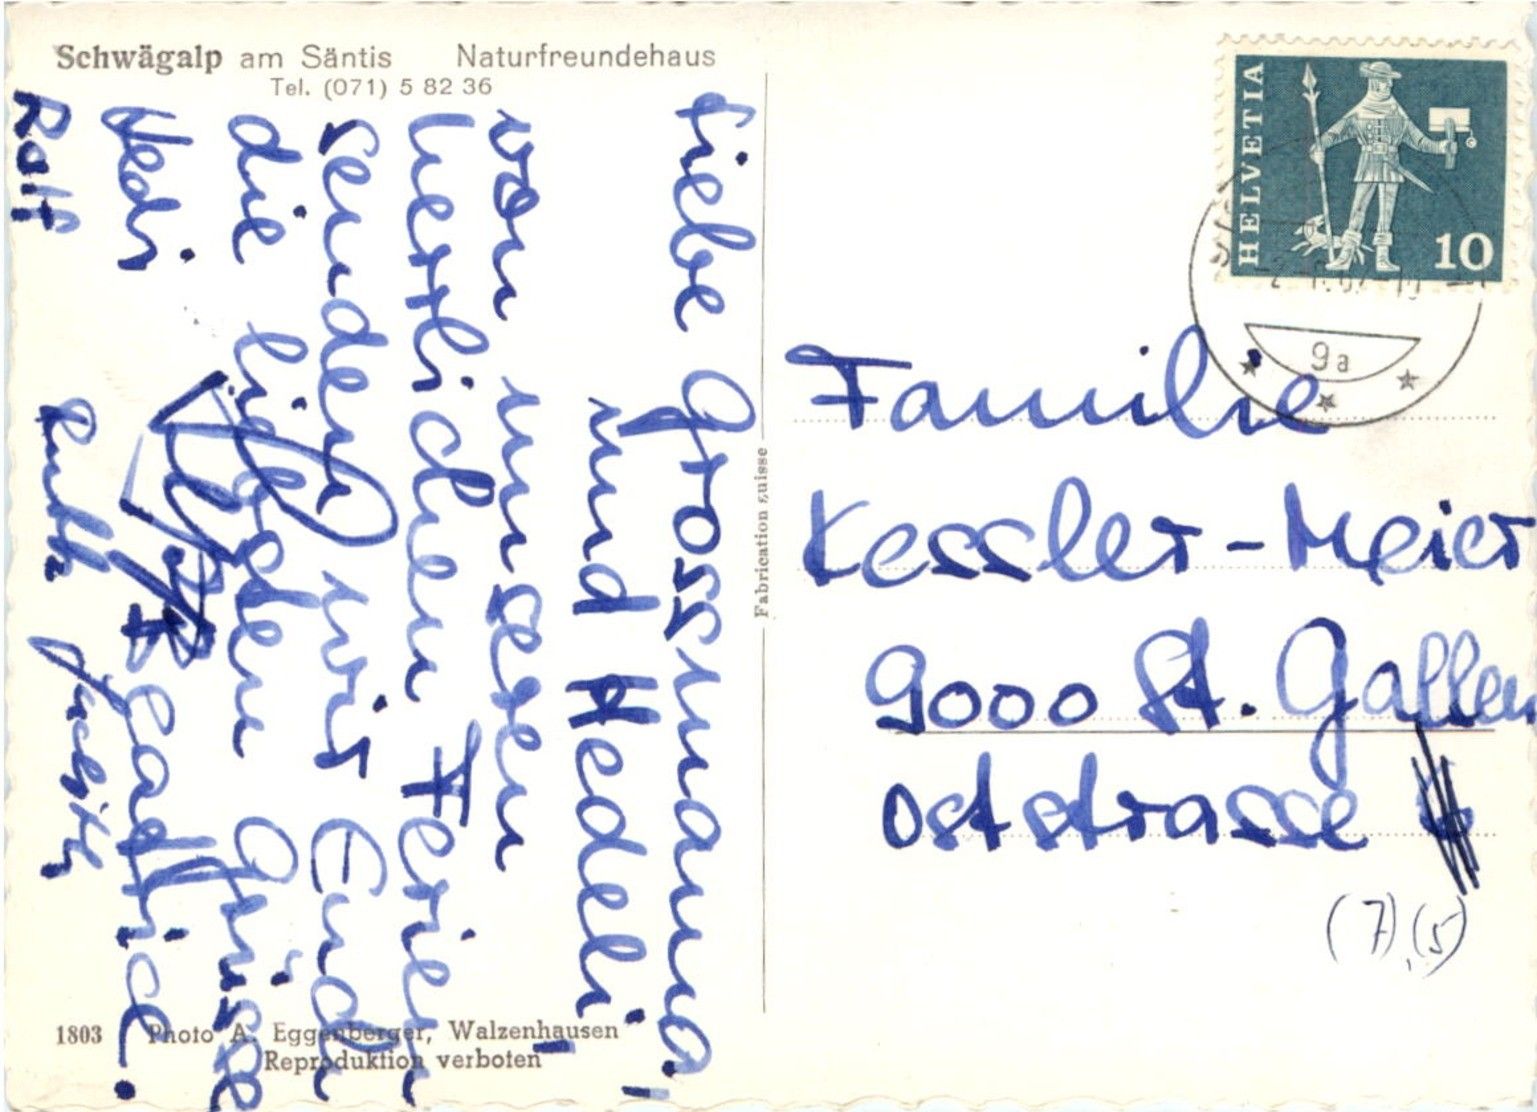 Schwägalp am Säntis Naturfreundehaus
Tel. (071) 5 82 36
Liebe Grossmama,
und Hedeli -
von unseren
herzlichen Ferien
senden wir Euch
die liebsten Grüsse
Hedi Beatrice.
Rolf Ruth
Fabrication suisse
1803 Photo A. Eggenberger, Walzenhausen
Reproduktion verboten
HELVETIA
10
9a
Familie
Kessler-Meier
9000 St. Gallen
Oststrasse
(7), (5)